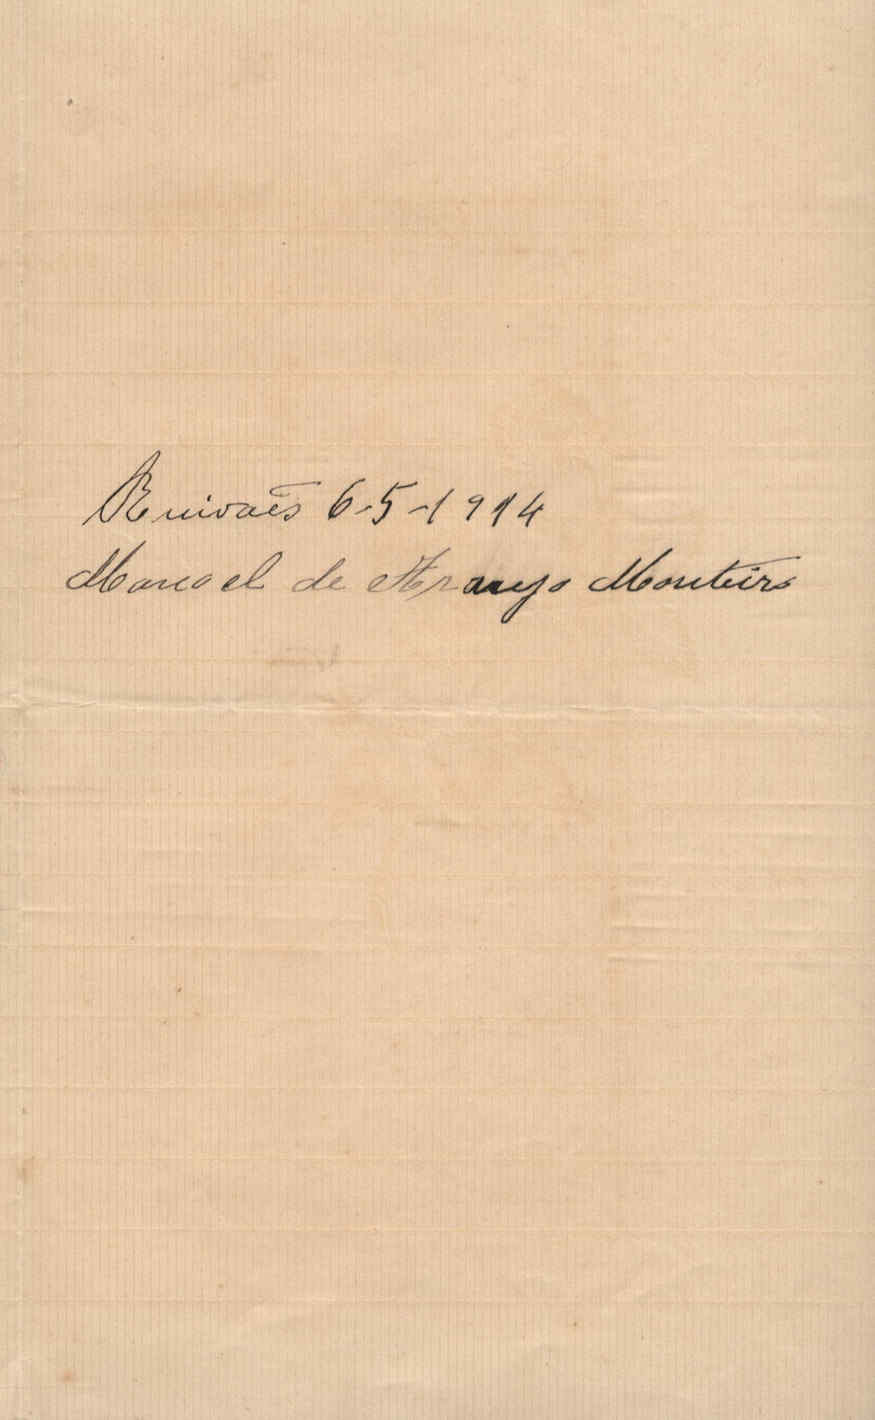 Ruivães 6-5-1914
Manoel de Araujo Monteiro